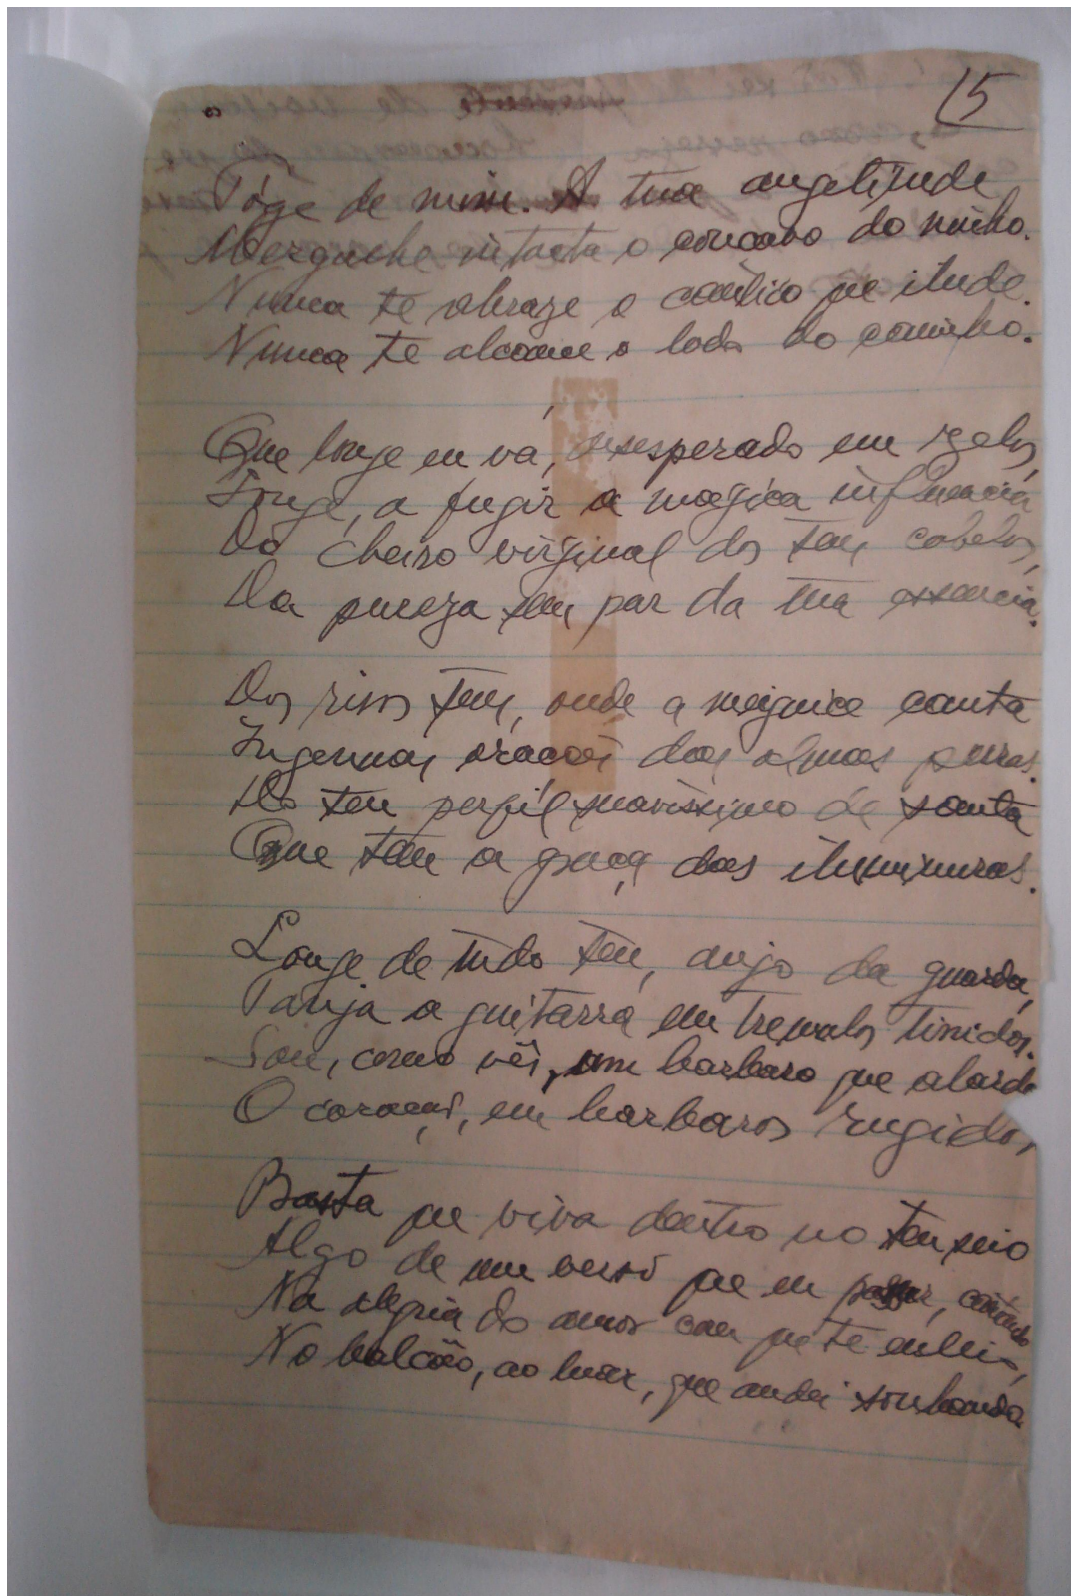 15
Fóge de mim. A tua angelitude
Mergulhe intacta o concavo do ninho.
Nunca te abraze o cantico que ilude.
Nunca te alcance o lodo do caminho.
Que longe eu vá, desesperado em zelos,
Longe, a fugir a magica influencia
Do cheiro virginal dos teus cabelos,
Da pureza sem par da tua essencia.
Dos risos teus, onde a meiguice canta
Ingenuas oracões das almas puras.
Do teu perfil suavissimo de santa
Que tem a graça das iluminuras.
Longe de tudo teu, anjo da guarda,
Tanja a guitarra em tremulos tinidos.
Sou, como vês, um barbaro que alarda
O coração, em barbaros rugidos,
Basta que viva dentro no teu seio
Algo de um verso que eu pass cantando
Na alegria do amor com que te enleio,
No balcão, ao luar, que andei sonhando